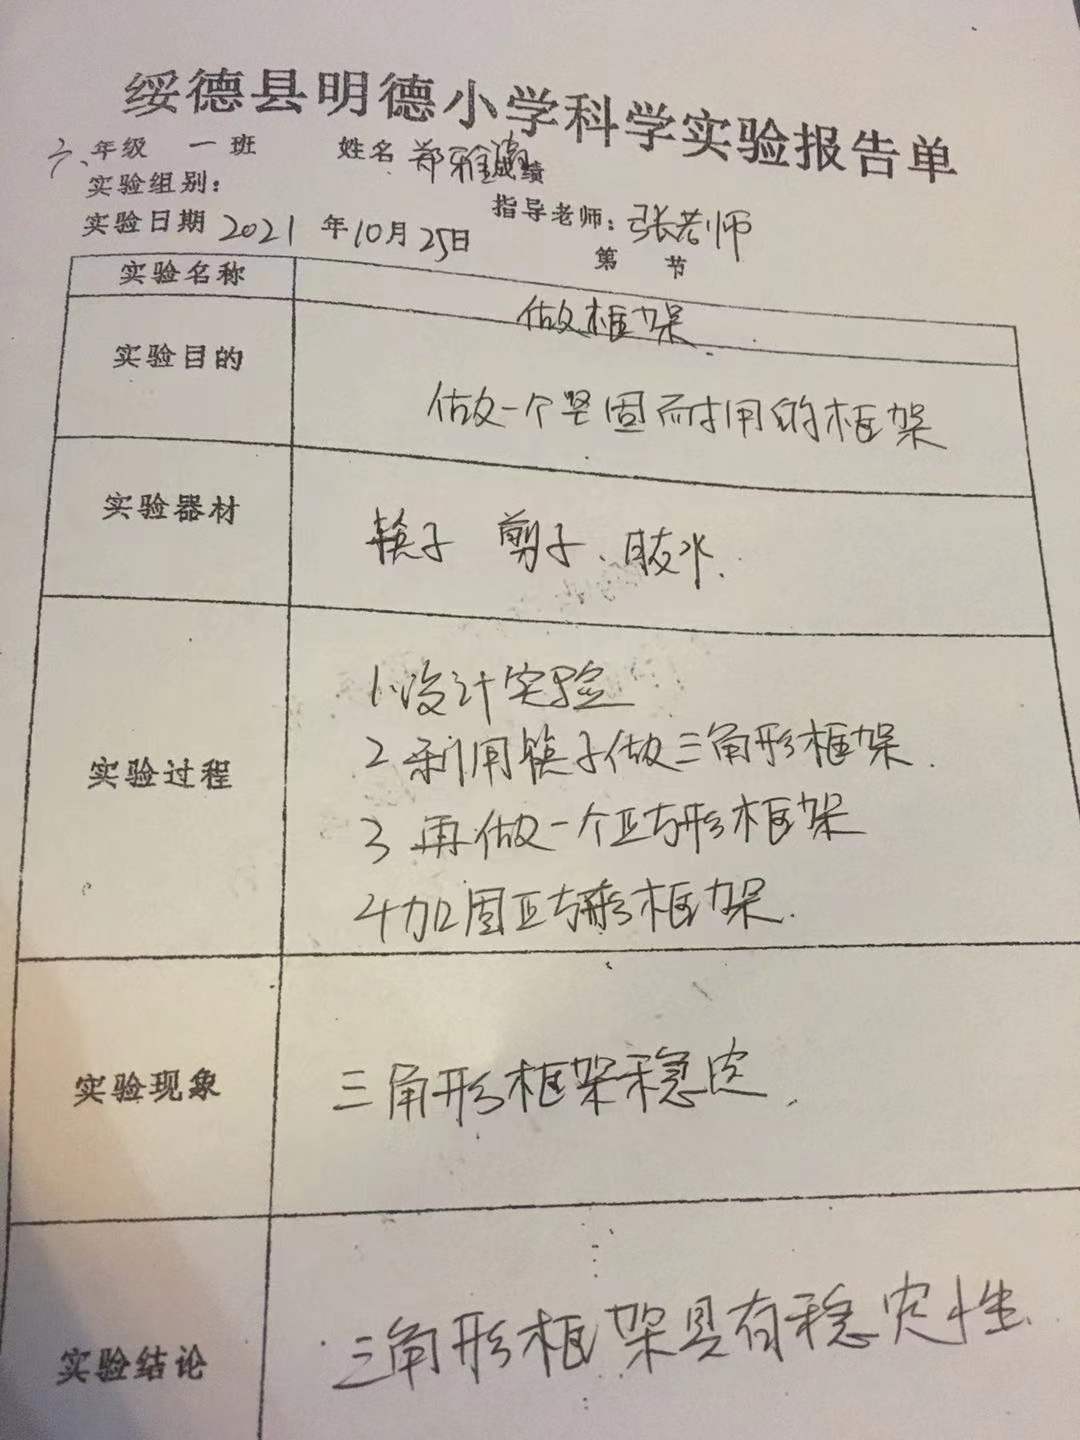 绥德县明德小学科学实验报告单
六、年级 一班 姓名 郑雅 成绩
实验组别：
指导老师：张老师
实验日期 2021 年10月25日
第 节
实验名称 做框架.
实验目的 做一个坚固而耐用的框架
实验器材 筷子 剪子、胶水.
实验过程
1.设计实验
2 利用筷子做三角形框架.
3 再做一个正方形框架
4加固正方形框架.
实验现象 三角形框架稳定.
实验结论 三角形框架具有稳定性.